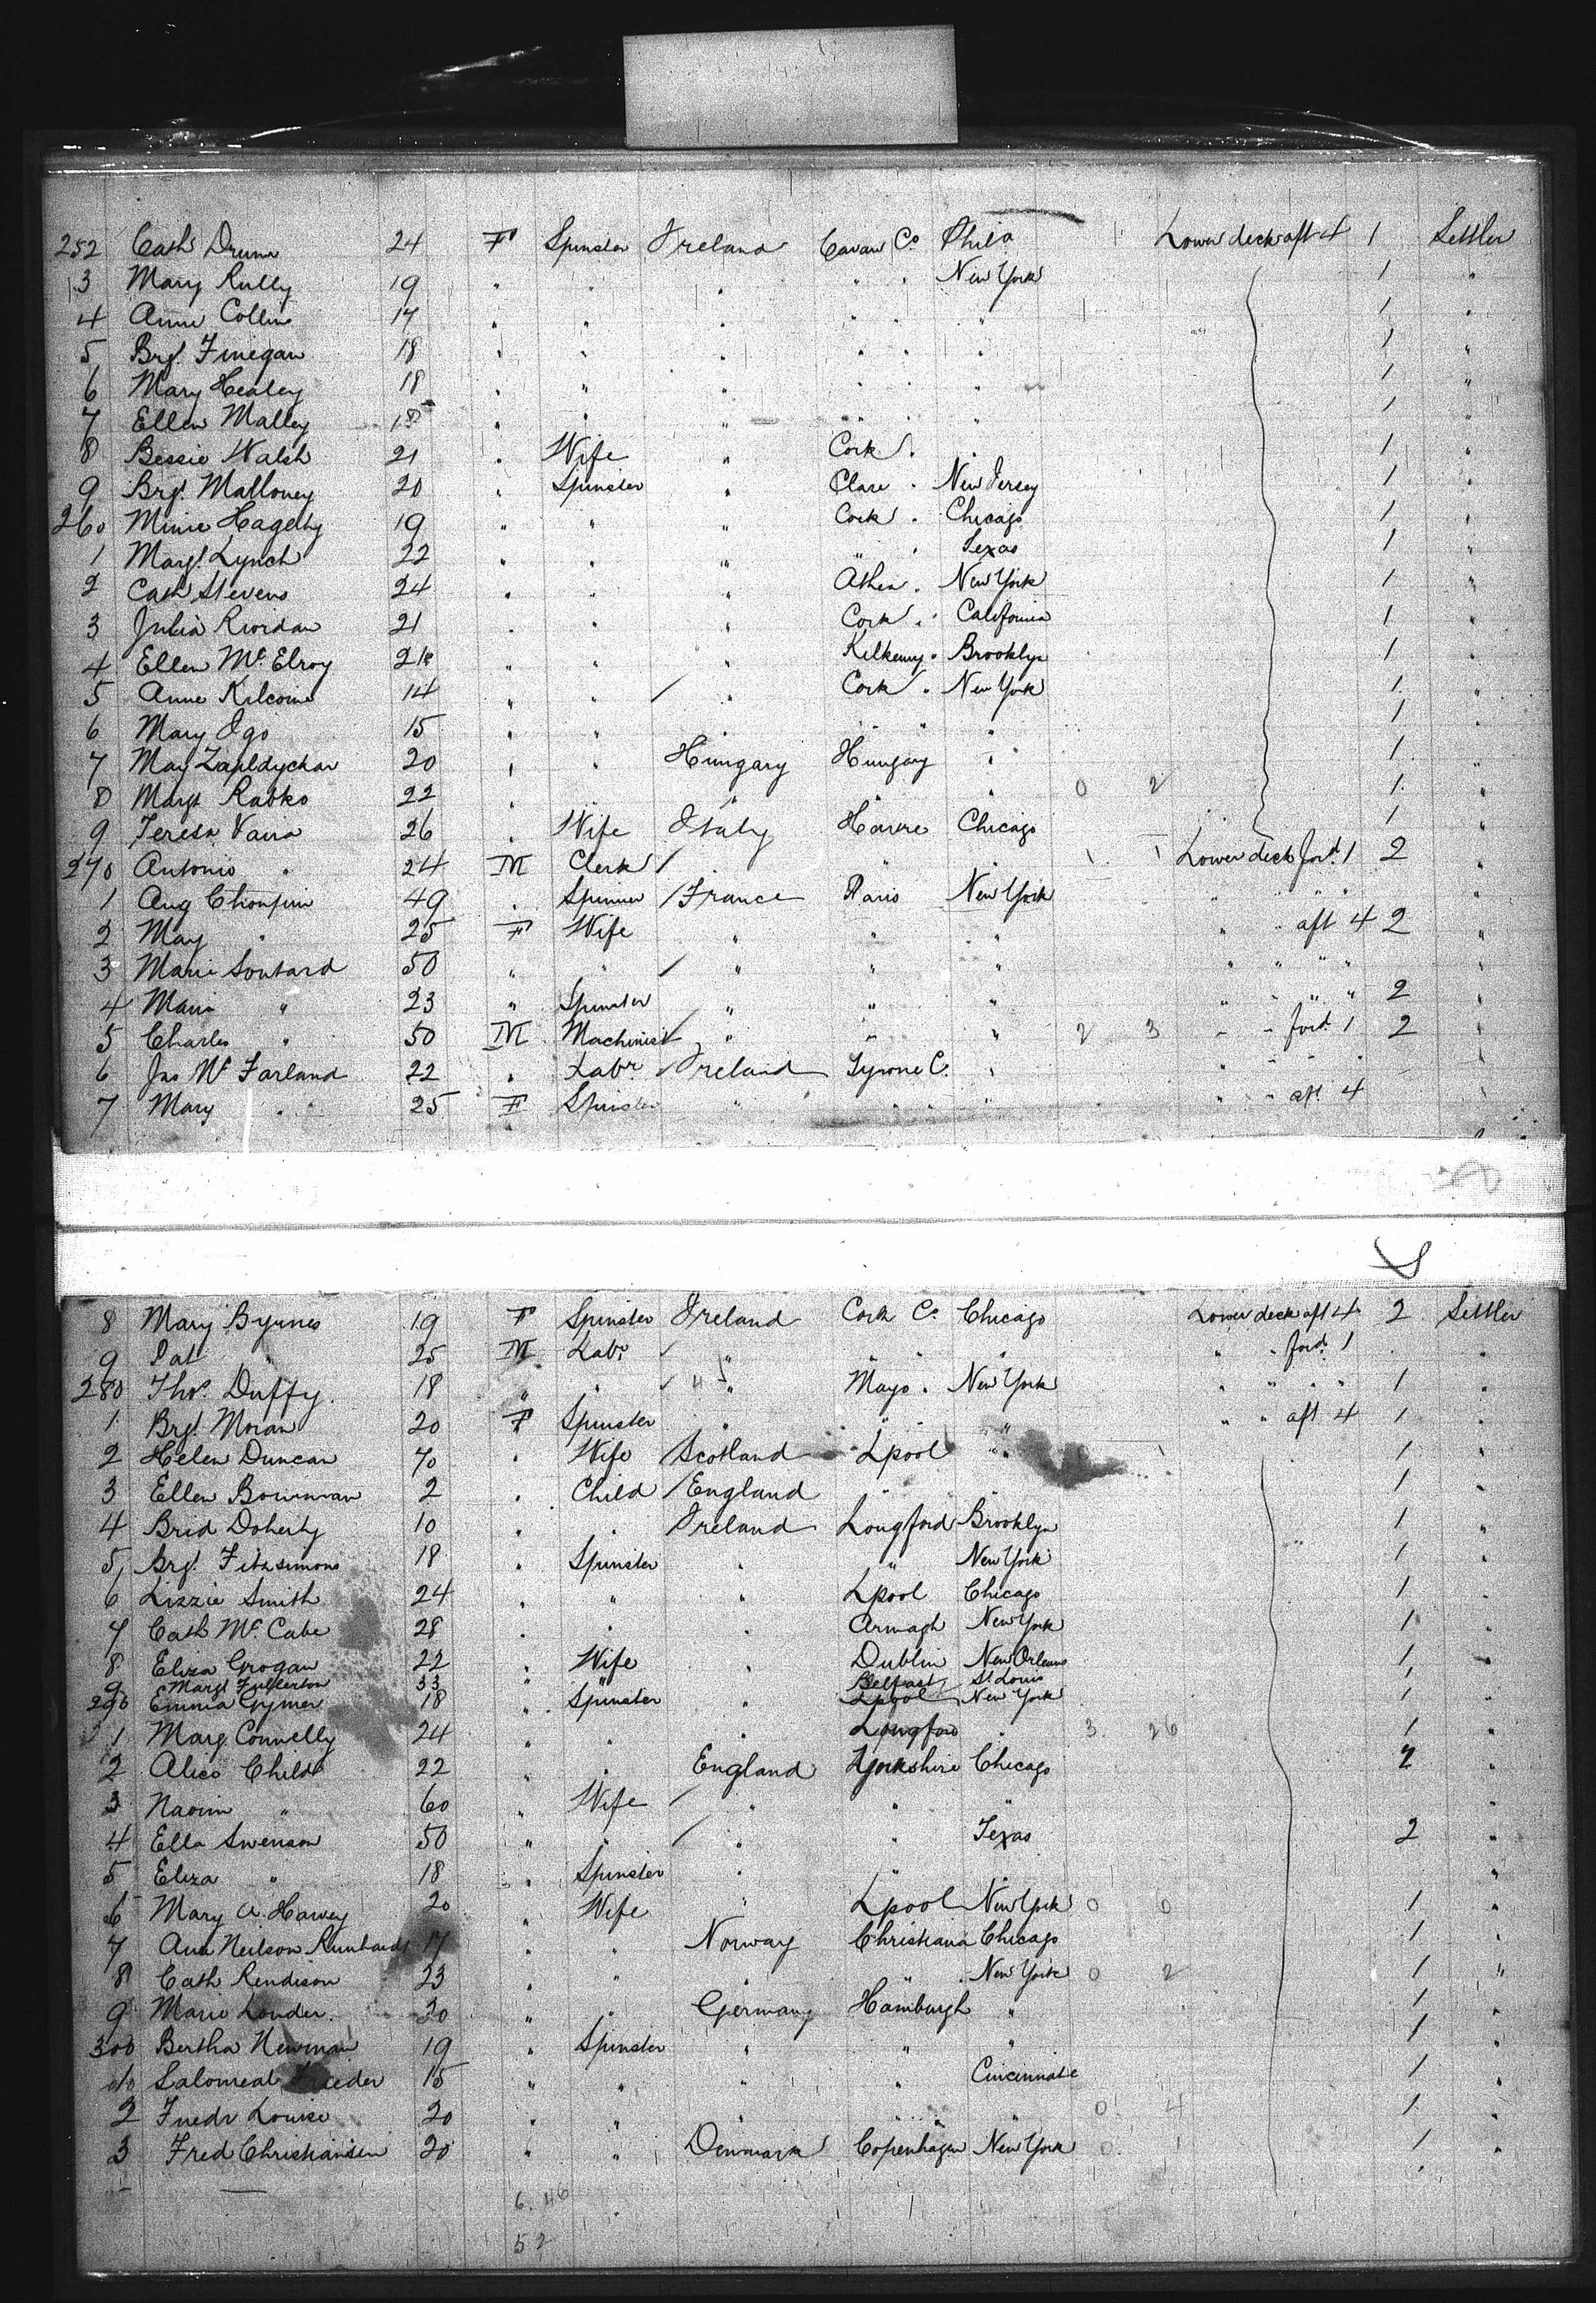 252 Cath Drum 24 F Spinster Ireland Cavan Co Phila Lower deck aft 4 1 Settler
3 Mary Rully 19 " " " " " New York 1 "
4 Anne Collins 17 " " " " " " 1 "
5 Brgt Finegan 18 " " " " " " 1 "
6 Mary Healey 18 " " " " " " 1 "
7 Ellen Malley 18 " " " " " " 1 "
8 Bessie Walsh 21 " Wife " Cork " " 1 "
9 Brgt Malloney 20 " Spinster " Clare " New Jersey 1 "
260 Minie Hagerty 19 " " " Cork " Chicago 1 "
1 Margt Lynch 22 " " " " " Texas 1 "
2 Cath Stevens 24 " " " Athen " New York 1 "
3 Julia Riordan 21 " " " Cork " California 1 "
4 Ellen Mc Elroy " " " Kilkenny " Brooklyn 1 "
5 Anne Kilcoine 14 " " / " Cork " New York 1 "
6 Mary Igo 15 " " " " " 1 "
7 May Zapldyckar 20 " " Hungary Hungary " 1 "
8 Margt Rabko 22 " " " " " 0 2 1 "
9 Teresa Vaira 26 " Wife Italy Havre Chicago 1 "
270 Antonio " 24 M Clerk / " " " 1 1 Lower deck ford 1 2 "
1 Aug 49 " Spinner / France Paris New York " " " " "
2 May " 25 F Wife " " " " " aft 4 2 "
3 Marie Soutard 50 " " / " " " " " " " "
4 Marie " 23 " Spinster " " " " " " " 2 "
5 Charles " 50 M Machinist / " " " 2 3 " " ford 1 2 "
6 Jno Mc Farland 22 " Labr / Ireland Tyrone C. " " " " " "
7 Mary " 25 F Spinster " " " " " " aft 4 "
8 Mary Byrnes 19 F Spinster Ireland Cork Co Chicago Lower deck aft 4 2 Settler
9 Pat " 25 M Labr / " " " " " " ford 1 "
280 Thos Duffy 18 " " / " Mayo " New York " " " " 1 "
1 Brgt Moran 20 F Spinster " " " " " " aft 4 1 "
2 Helen Duncan 70 " Wife Scotland Lpool " 1 "
3 Ellen Bowman 2 " Child / England " " 1 "
4 Brid Doherty 10 " " Ireland Longford Brooklyn 1 "
5 Brgt Fitzsimons 18 " Spinster " " New York 1 "
6 Lizzie Smith 24 " " " Lpool Chicago 1 "
7 Cath Mc Cabe 28 " " " Armagh New York 1 "
8 Eliza Grogan 22 " Wife " Dublin New Orleans 1 "
9 Margt Fullerton 33 " " " Belfast St Louis 1 "
290 Emma Gymer 18 " Spinster " Lpool New York 1 "
1 Marg Connelly 24 " " " Longford " 3 26 1 "
2 Alice Childs 22 " " England Yorkshire Chicago 2 "
3 Naomi " 60 " Wife / " " " "
4 Ella Swenson 50 " " / " " Texas 2 "
5 Eliza " 18 " Spinster " " " "
6 Mary A. Harvey 20 " Wife " Lpool New York 0 0 1 "
7 Ana Neilson 17 " " Norway Christiana Chicago 1 "
8 Cath Rendison 23 " " " " New York 0 2 1 "
9 Marie Louder 30 " " Germany Hamburgh " 1 "
300 Bertha Newman 19 " Spinster " " " 1 "
Salomeal 15 " " " " Cincinnati 1 "
2 Louise 20 " " " " " 0 4 1 "
3 Fred Christiansen 20 " " Denmark Copenhagen New York 0 1 1 "
6. 46
52